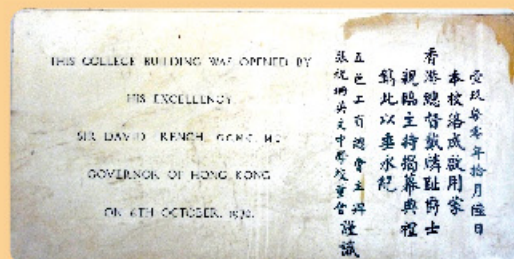 THIS COLLEGE BUILDING WAS OPENED BY
HIS EXCELLENCY
SIR DAVID TRENCH, G.C.M.G., M.C.
GOVERNOR OF HONG KONG
ON 6TH OCTOBER, 1970.
壹玖柒零年拾月陸日
本校落成啟用蒙
香港總督戴麟趾爵士
親臨主持揭幕典禮
鐫此以垂永紀
五邑工商總會主辦
張祝珊英文中學校董會謹識